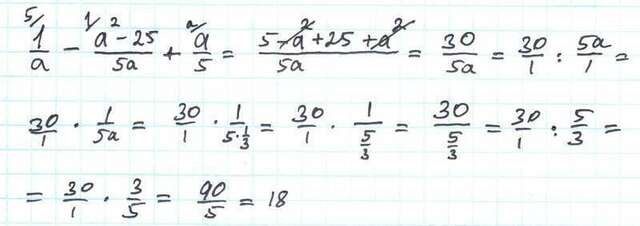 5/ 1/a − 1/ (a² − 25)/5a + a/ a/5 = (5 − a² + 25 + a²)/5a = 30/5a = 30/1 : 5a/1 =
30/1 · 1/5a = 30/1 · 1/(5·1/3) = 30/1 · 1/(5/3) = 30/(5/3) = 30/1 : 5/3 =
= 30/1 · 3/5 = 90/5 = 18